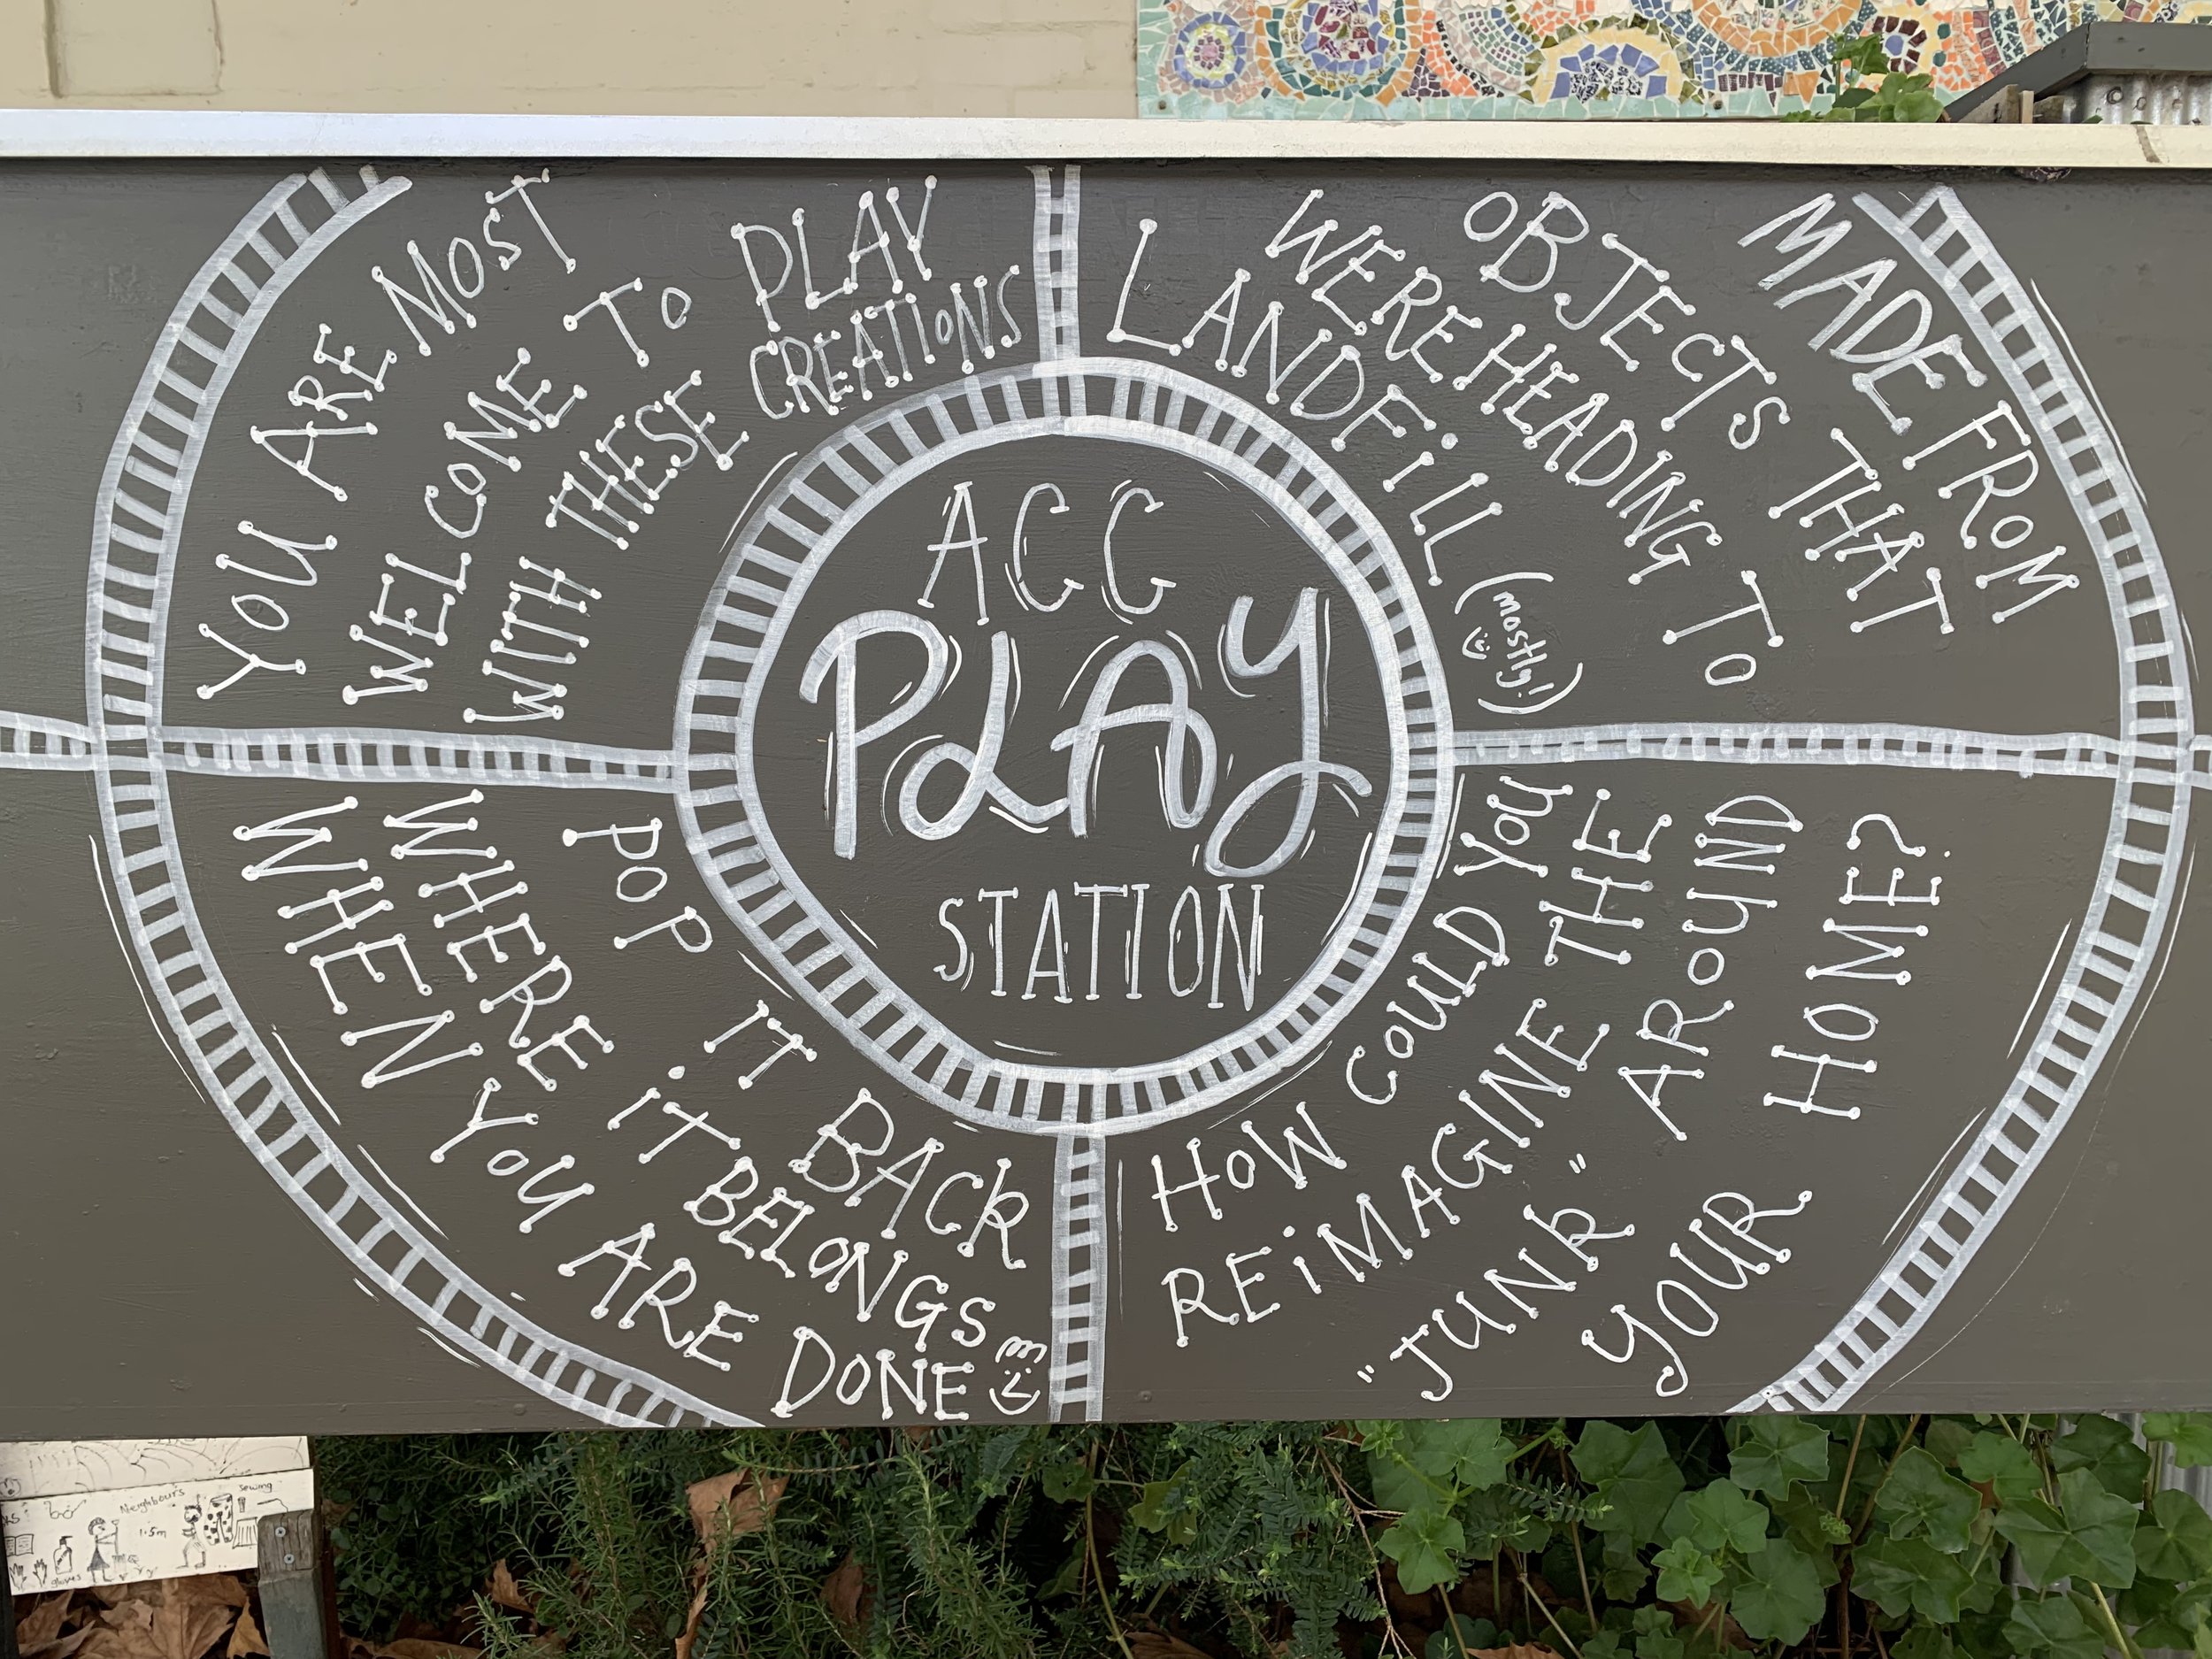 ACG
PLAY
STATION
YOU ARE MOST
WELCOME TO PLAY
WITH THESE CREATIONS
MADE FROM
OBJECTS THAT
WERE HEADING TO
LANDFiLL (mostly!)
HOW COULD YOU
REiMAGINE THE
"JUNK" AROUND
YOUR HOME?
WHEN YOU ARE DONE
WHERE iT BELONGS
POP IT BACK
Neighbours
sewing
1.5m
gloves